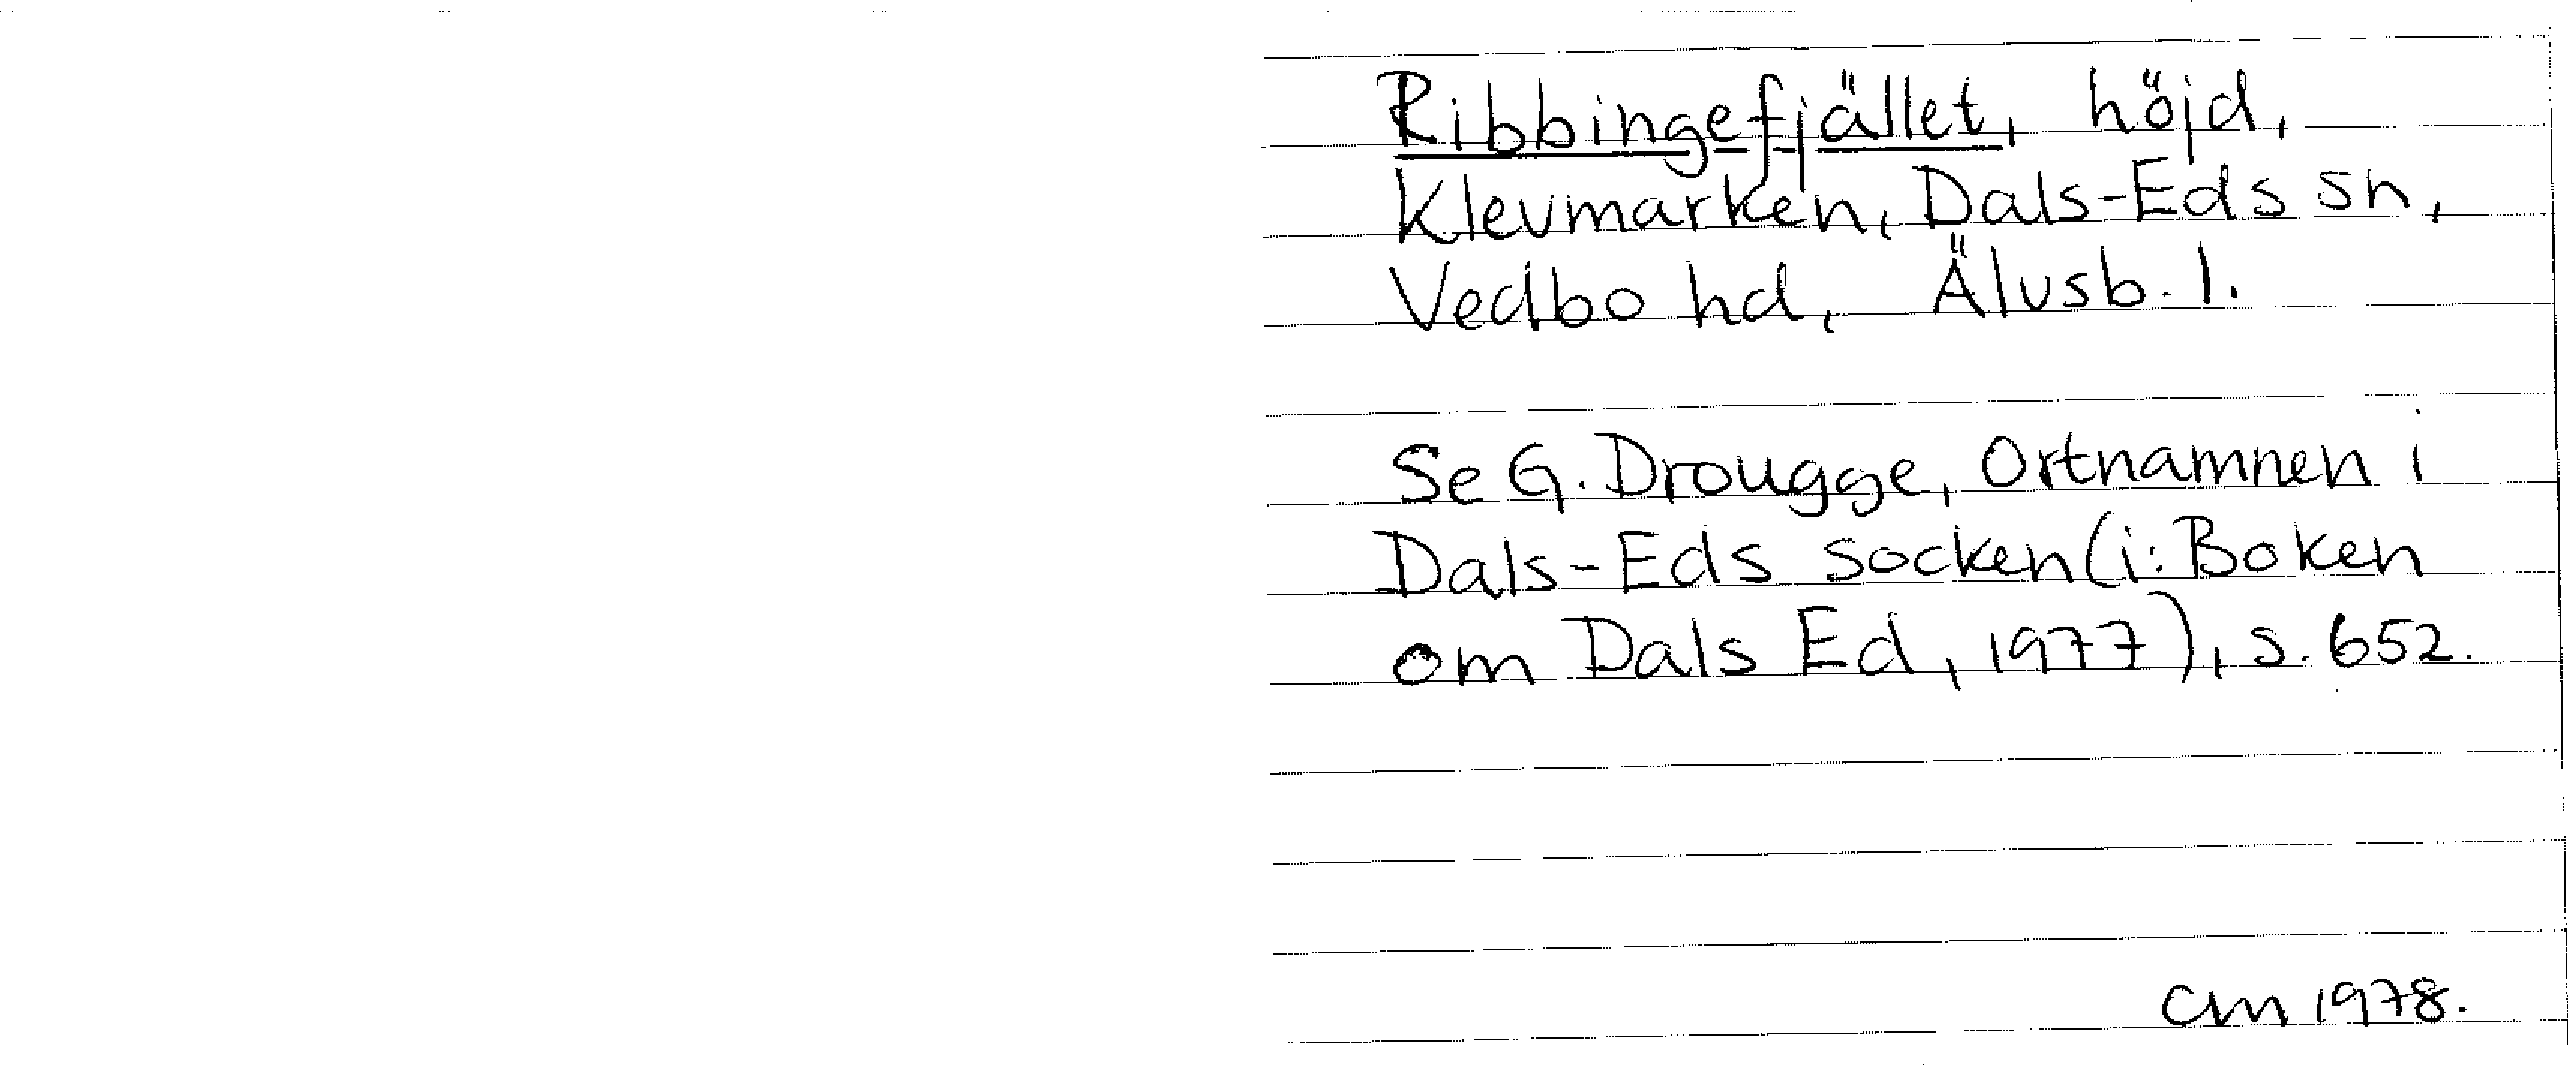 Ribbingefjället, höjd,
Klevmarken, Dals-Eds sn,
Vedbo hd, Älvsb. l.
Se G. Drougge, Ortnamnen i
Dals-Eds socken (i: Boken
om Dals Ed, 1977), s. 652.
CM 1978.